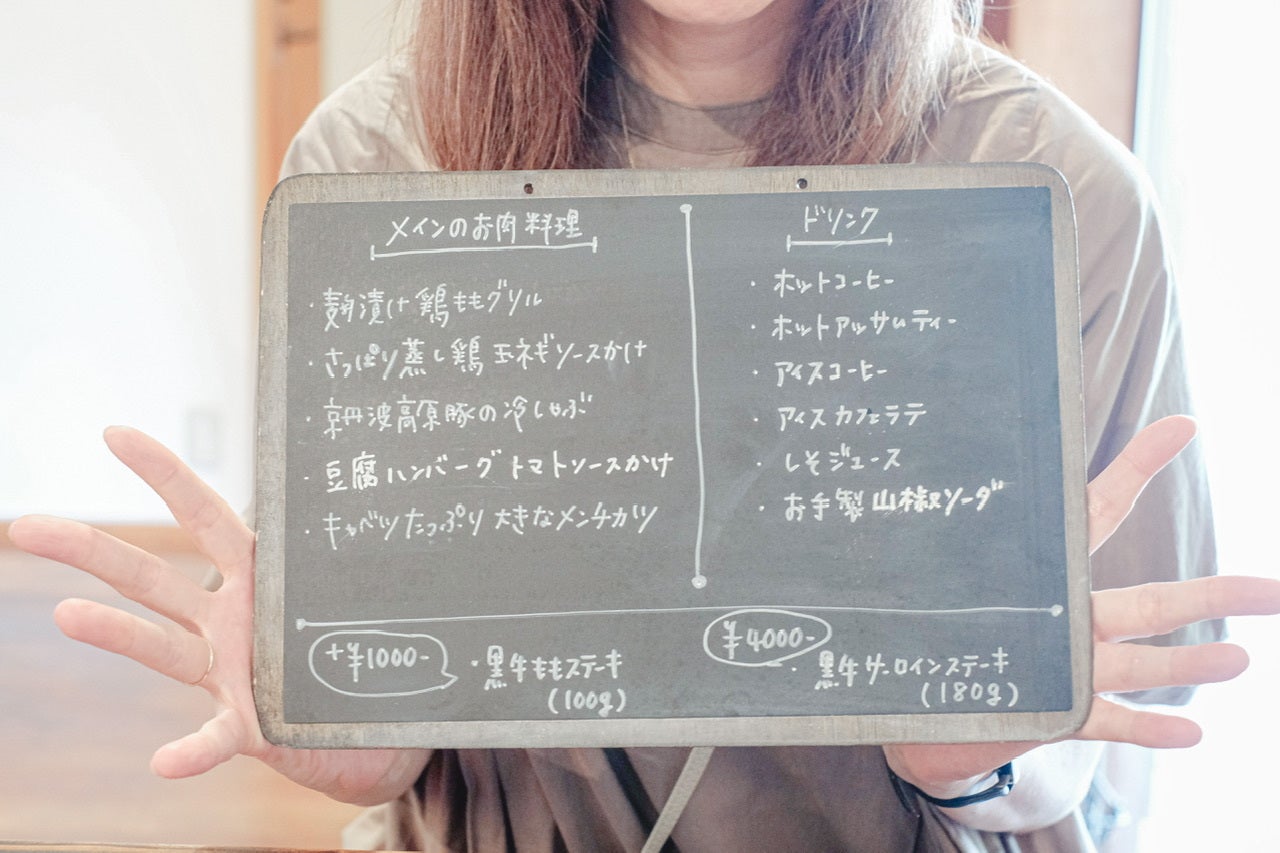 メインのお肉料理
・麹漬け鶏ももグリル
・さっぱり蒸し鶏 玉ネギソースかけ
・京丹波高原豚の冷しゃぶ
・豆腐ハンバーグ トマトソースかけ
・キャベツたっぷり 大きなメンチカツ
ドリンク
・ホットコーヒー
・ホットアッサムティー
・アイスコーヒー
・アイスカフェラテ
・しそジュース
・お手製山椒ソーダ
+¥1000-
・黒牛ももステーキ
(100g)
¥4000-
・黒牛サーロインステーキ
(180g)